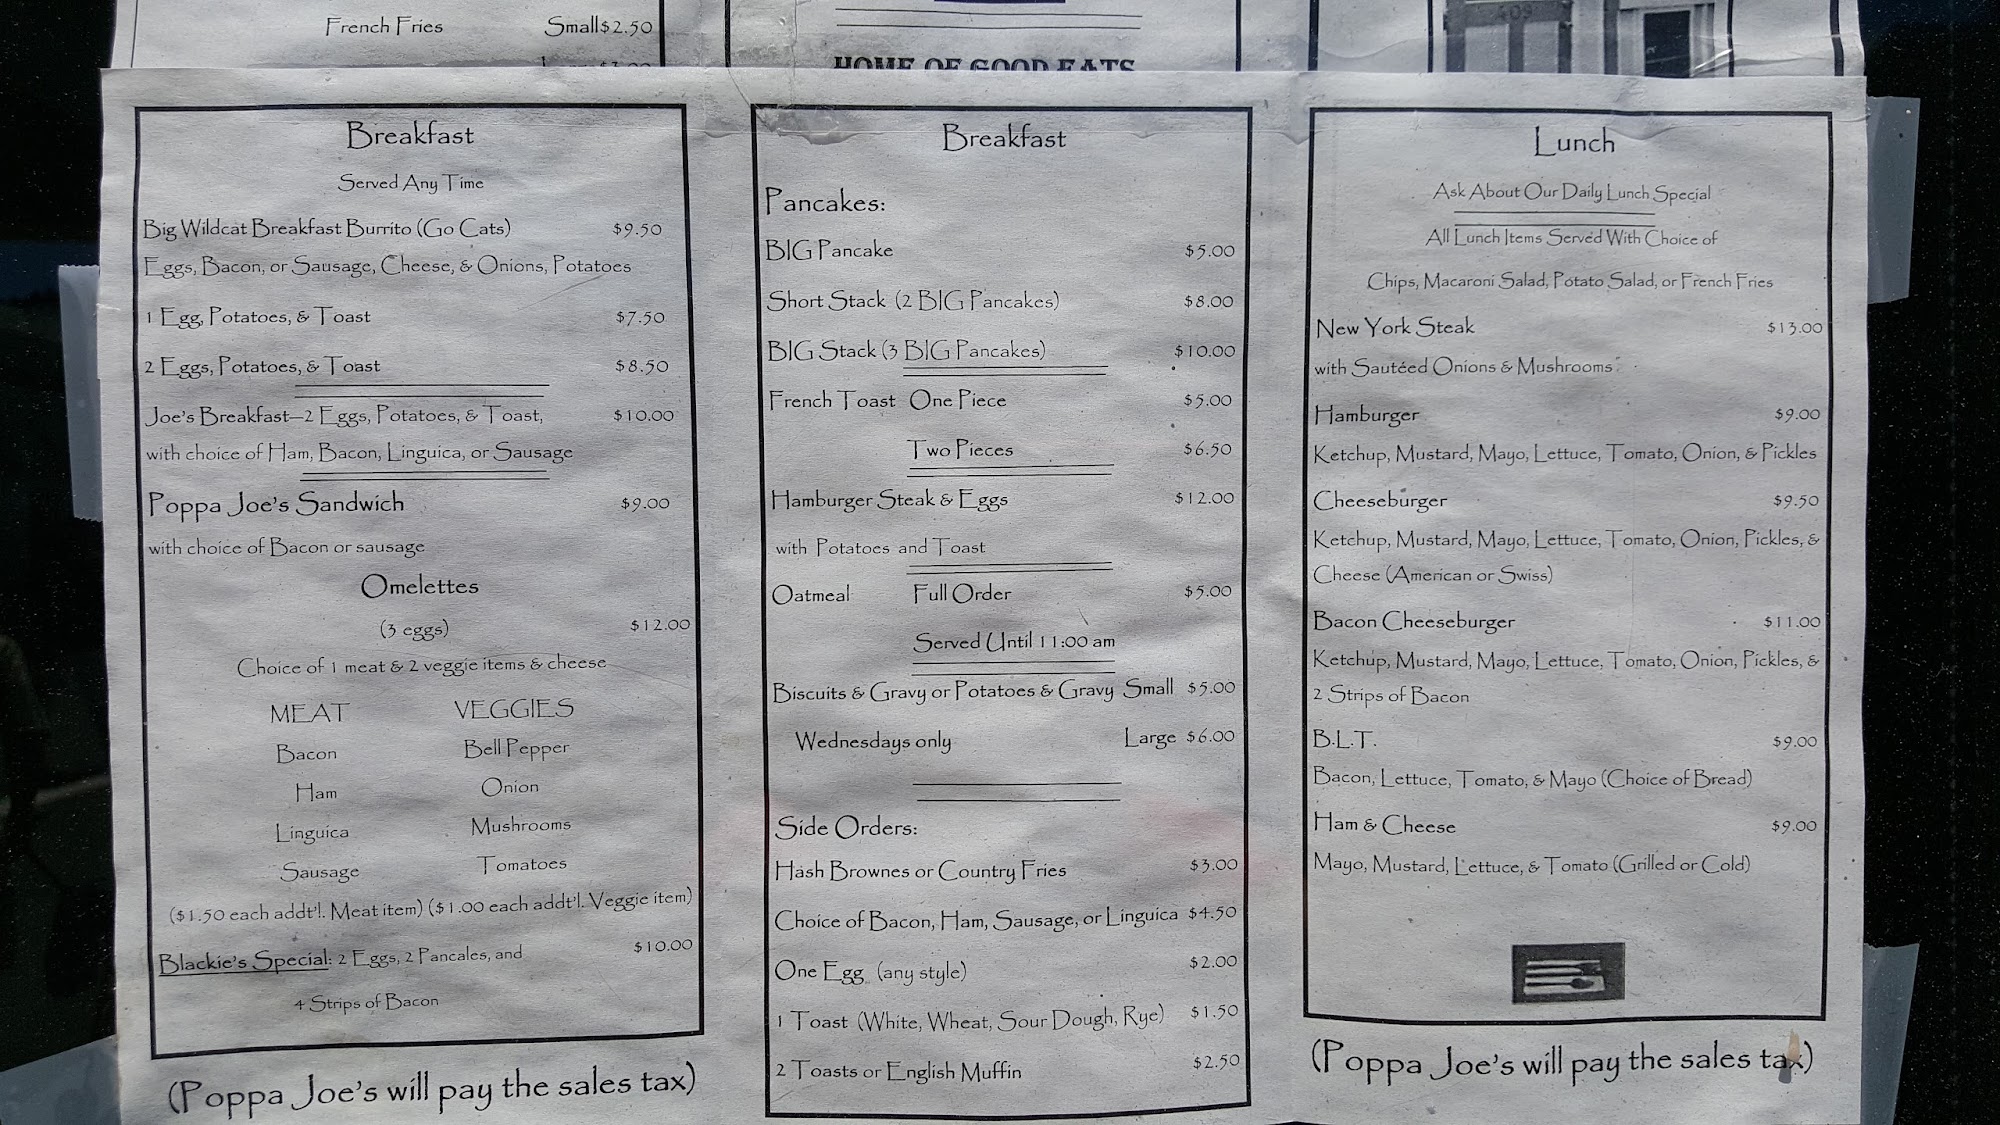 French Fries Small$2.50
HOME OF GOOD EATS
409
Breakfast
Served Any Time
Big Wildcat Breakfast Burrito (Go Cats) $9.50
Eggs, Bacon, or Sausage, Cheese, & Onions, Potatoes
1 Egg, Potatoes, & Toast $7.50
2 Eggs, Potatoes, & Toast $8.50
Joe's Breakfast—2 Eggs, Potatoes, & Toast, $10.00
with choice of Ham, Bacon, Linguica, or Sausage
Poppa Joe's Sandwich $9.00
with choice of Bacon or sausage
Omelettes
(3 eggs) $12.00
Choice of 1 meat & 2 veggie items & cheese
MEAT VEGGIES
Bacon Bell Pepper
Ham Onion
Linguica Mushrooms
Sausage Tomatoes
($1.50 each addt'l. Meat item) ($1.00 each addt'l. Veggie item)
Blackie's Special: 2 Eggs, 2 Pancales, and $10.00
4 Strips of Bacon
(Poppa Joe's will pay the sales tax)
Breakfast
Pancakes:
BIG Pancake $5.00
Short Stack (2 BIG Pancakes) $8.00
BIG Stack (3 BIG Pancakes) $10.00
French Toast One Piece $5.00
Two Pieces $6.50
Hamburger Steak & Eggs $12.00
with Potatoes and Toast
Oatmeal Full Order $5.00
Served Until 11:00 am
Biscuits & Gravy or Potatoes & Gravy Small $5.00
Wednesdays only Large $6.00
Side Orders:
Hash Brownes or Country Fries $3.00
Choice of Bacon, Ham, Sausage, or Linguica $4.50
One Egg (any style) $2.00
1 Toast (White, Wheat, Sour Dough, Rye) $1.50
2 Toasts or English Muffin $2.50
Lunch
Ask About Our Daily Lunch Special
All Lunch Items Served With Choice of
Chips, Macaroni Salad, Potato Salad, or French Fries
New York Steak $13.00
with Sautéed Onions & Mushrooms
Hamburger $9.00
Ketchup, Mustard, Mayo, Lettuce, Tomato, Onion, & Pickles
Cheeseburger $9.50
Ketchup, Mustard, Mayo, Lettuce, Tomato, Onion, Pickles, &
Cheese (American or Swiss)
Bacon Cheeseburger $11.00
Ketchup, Mustard, Mayo, Lettuce, Tomato, Onion, Pickles, &
2 Strips of Bacon
B.L.T. $9.00
Bacon, Lettuce, Tomato, & Mayo (Choice of Bread)
Ham & Cheese $9.00
Mayo, Mustard, Lettuce, & Tomato (Grilled or Cold)
(Poppa Joe's will pay the sales tax)